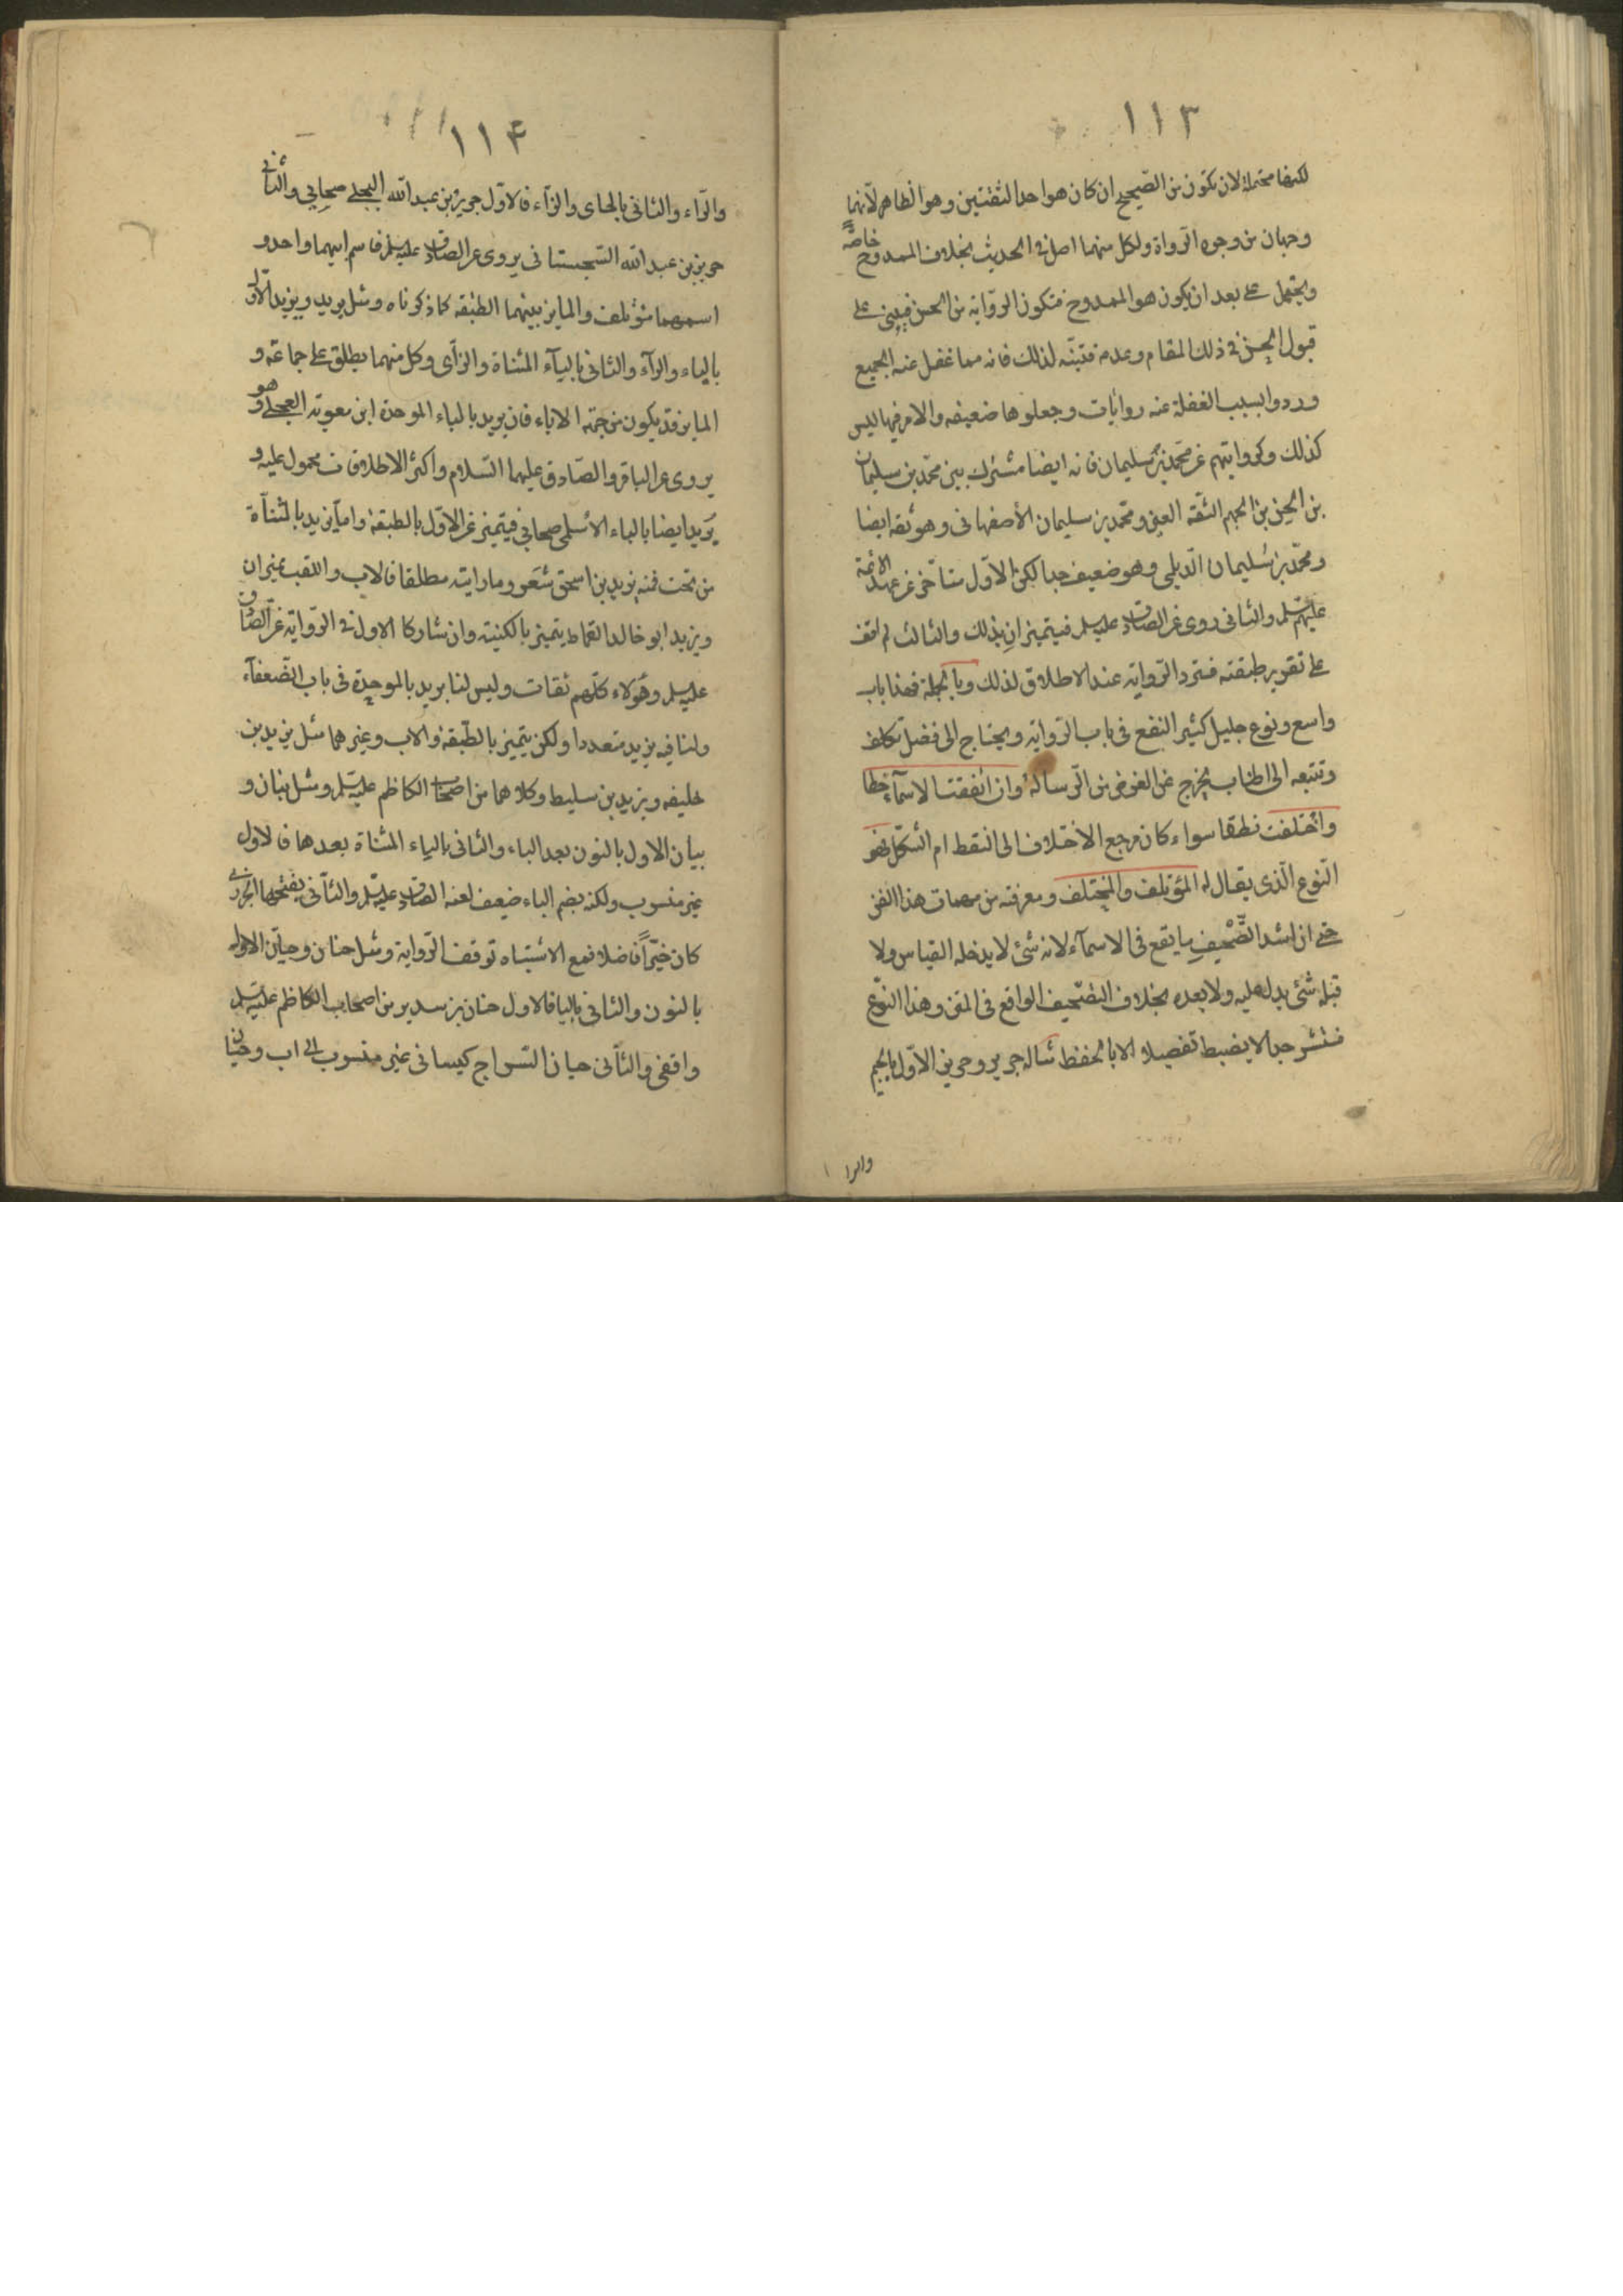 ١١٣
لكنها محتملة لان تكون من الصحيح ان كان هو احد الثقتين وهو الظاهر لانهما
وجهان من وجوه الرواة ولكل منهما اصل في الحديث بخلاف الممدوح خاصة
ويحتمل على بعد ان يكون هو الممدوح فتكون الرواية من الحسن فيبنى على
قبول الحسن في ذلك المقام وعدمه فتنبه لذلك فانه مما غفل عنه الجميع
وردوا بسبب الغفلة عنه روايات وجعلوها ضعيفه والامر فيها ليس
كذلك وكروايتهم عن محمد بن سليمان فانه ايضا مشترك بين محمد بن سليمان
بن الحسن بن الجهم الثقة العين ومحمد بن سليمان الأصفهاني وهو ثقه ايضا
ومحمد بن سليمان الديلمي وهو ضعيف جدا لكن الاول متأخر عن عهد الائمة
عليهم سلم والثاني روى عن الصادق عليه سلم فيتميزان بذلك والثالث لم اقف
على تقرير طبقته فترد الرواية عند الاطلاق لذلك وبالجملة فهذا باب
واسع ونوع جليل كثير النفع في باب الرواية ويحتاج الى فضل تكلف
وتتبعه الى اطناب يخرج عن الغرض من الرسالة وان اتفقت الاسماء خطا
واختلفت نطقا سواء كان مرجع الاختلاف الى النقط ام الشكل فهو
النوع الذي يقال له المؤتلف والمختلف ومعرفته من مهمات هذا الفن
حتى ان اشد التصحيف ما يقع في الاسماء لانه شئ لا يدخله القياس ولا
قبله شئ يدل عليه ولا بعده بخلاف التصحيف الواقع في المتن وهذا النوع
منتشر جدا لا يضبط تفصيلا الا بالحفظ مثاله جرير وحريز الاول بالجيم
والرا
١١۴
والراء والثاني بالحاى والزاء فالاول جرير بن عبد الله البجلي صحابي والثاني
حريز بن عبد الله السجستاني يروى عن الصادق عليه سلم فاسم ابيهما واحد و
اسمهما مؤتلف والمايز بينهما الطبقه كما ذكرناه ومثل بريد ويزيد الاول
بالباء والراء والثاني بالياء المثناة والزاى وكل منهما يطلق على جماعة و
المايز قد يكون من جهة الاباء فان بريد بالباء الموحدة ابن معوية العجلي وهو
يروى عن الباقر والصادق عليهما السلام واكثر الاطلاقات محمول عليه و
بريد ايضا بالباء الأسلمي صحابي فيتميز عن الاول بالطبقة واما يزيد بالمثناة
من تحت فمنه يزيد بن اسحق شعر وما رايته مطلقا فالاب واللقب مميزان
ويزيد ابو خالد القماط يتميز بالكنية وان شاركا الاول في الرواية عن الصادق
عليه سلم وهؤلاء كلهم ثقات وليس لنا بريد بالموحدة في باب الضعفاء
ولنا فيه يزيد متعددا ولكن يتميز بالطبقة والاب وغيرهما مثل يزيد بن
خليفه ويزيد بن سليط وكلاهما من اصحاب الكاظم عليه سلم ومثل بنان و
بيان الاول بالنون بعد الباء والثاني بالياء المثناة بعدها فالاول
غير منسوب ولكنه بضم الباء ضعيف لعنه الصادق عليه سلم والثاني بفتحها الجزري
كان خيرا فاضلا فمع الاشتباه توقف الرواية ومثل حنان وحيان الاول
بالنون والثاني باليا فالاول حنان بن سدير من اصحاب الكاظم عليه سلم
واقفي والثاني حيان السراج كيساني غير منسوب الى اب وحيان